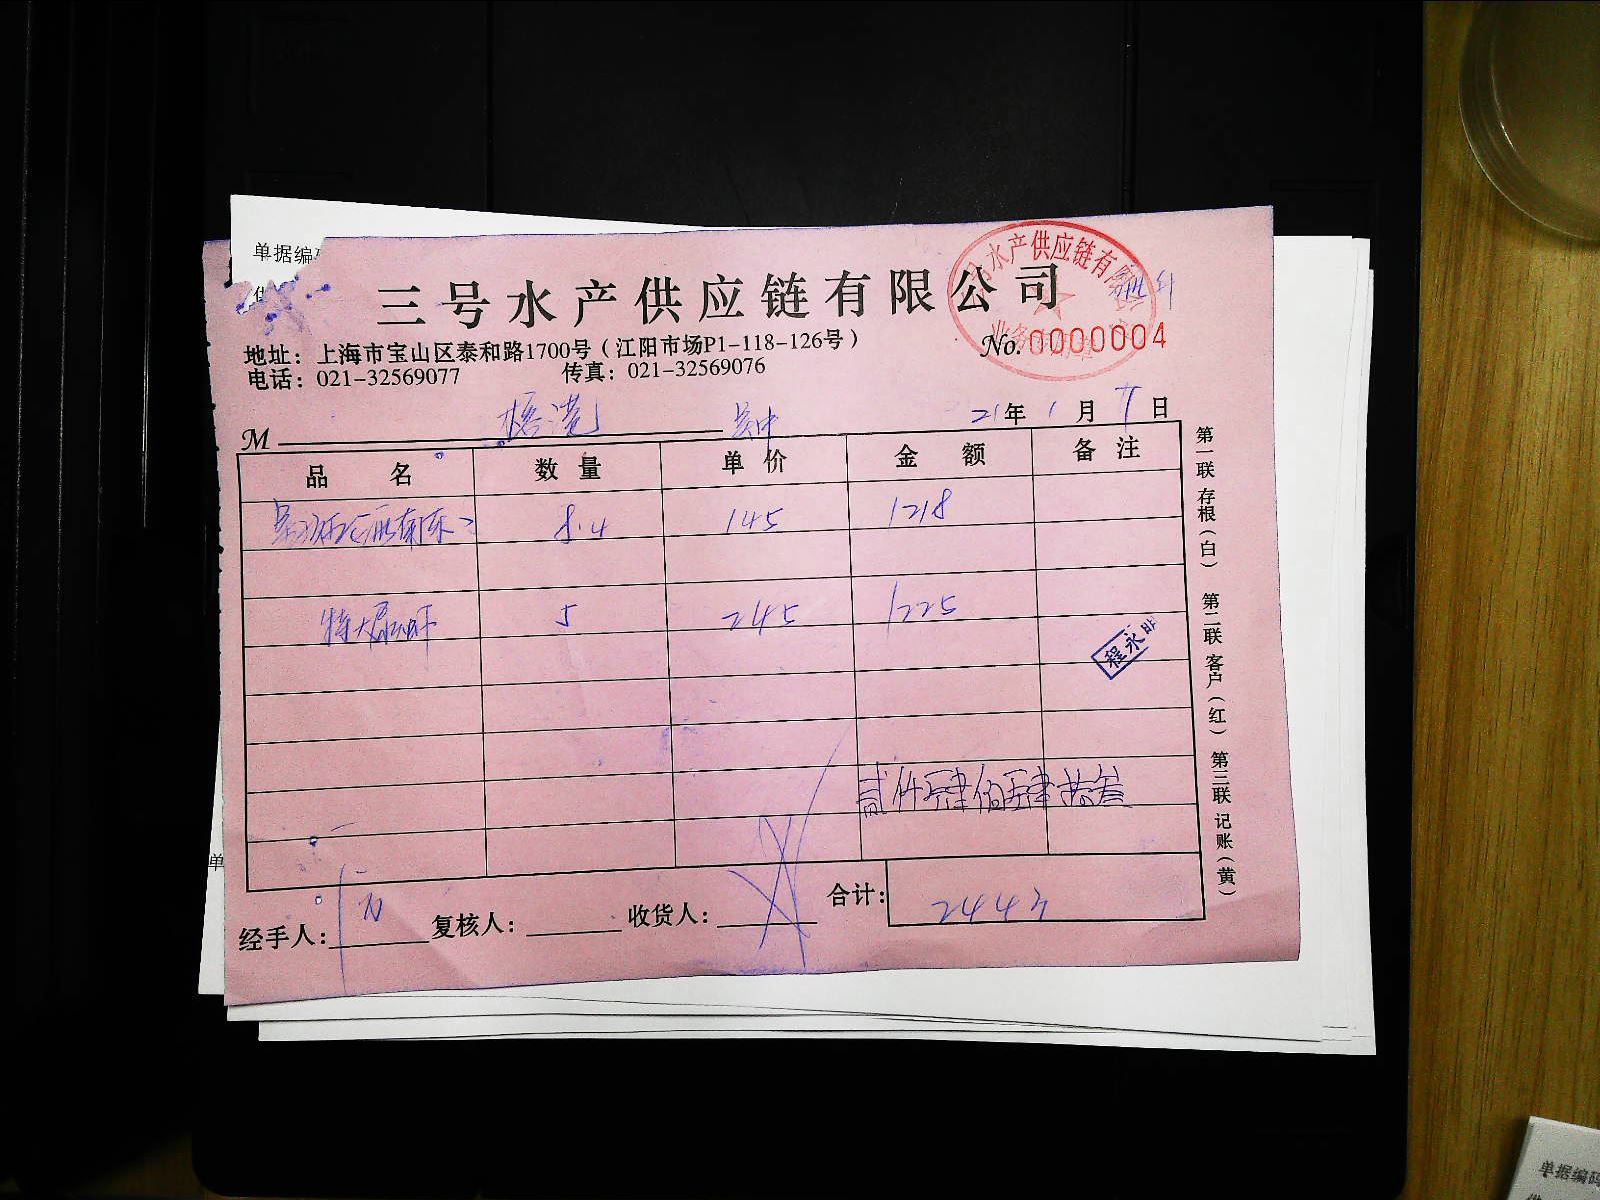 单据编
三号水产供应链有限公司
水产供应链有限
地址：上海市宝山区泰和路1700号（江阳市场P1-118-126号）
No.0000004
电话：021-32569077 传真：021-32569076
M 21年1月7日
品名 数量 单价 金额 备注
8.4 145 1218
特大 虾 5 245 1225
程永明
贰仟肆佰肆拾叁
合计： 2443
经手人： 复核人： 收货人：
第一联 存根（白） 第二联 客户（红） 第三联 记账（黄）
单
单据编码